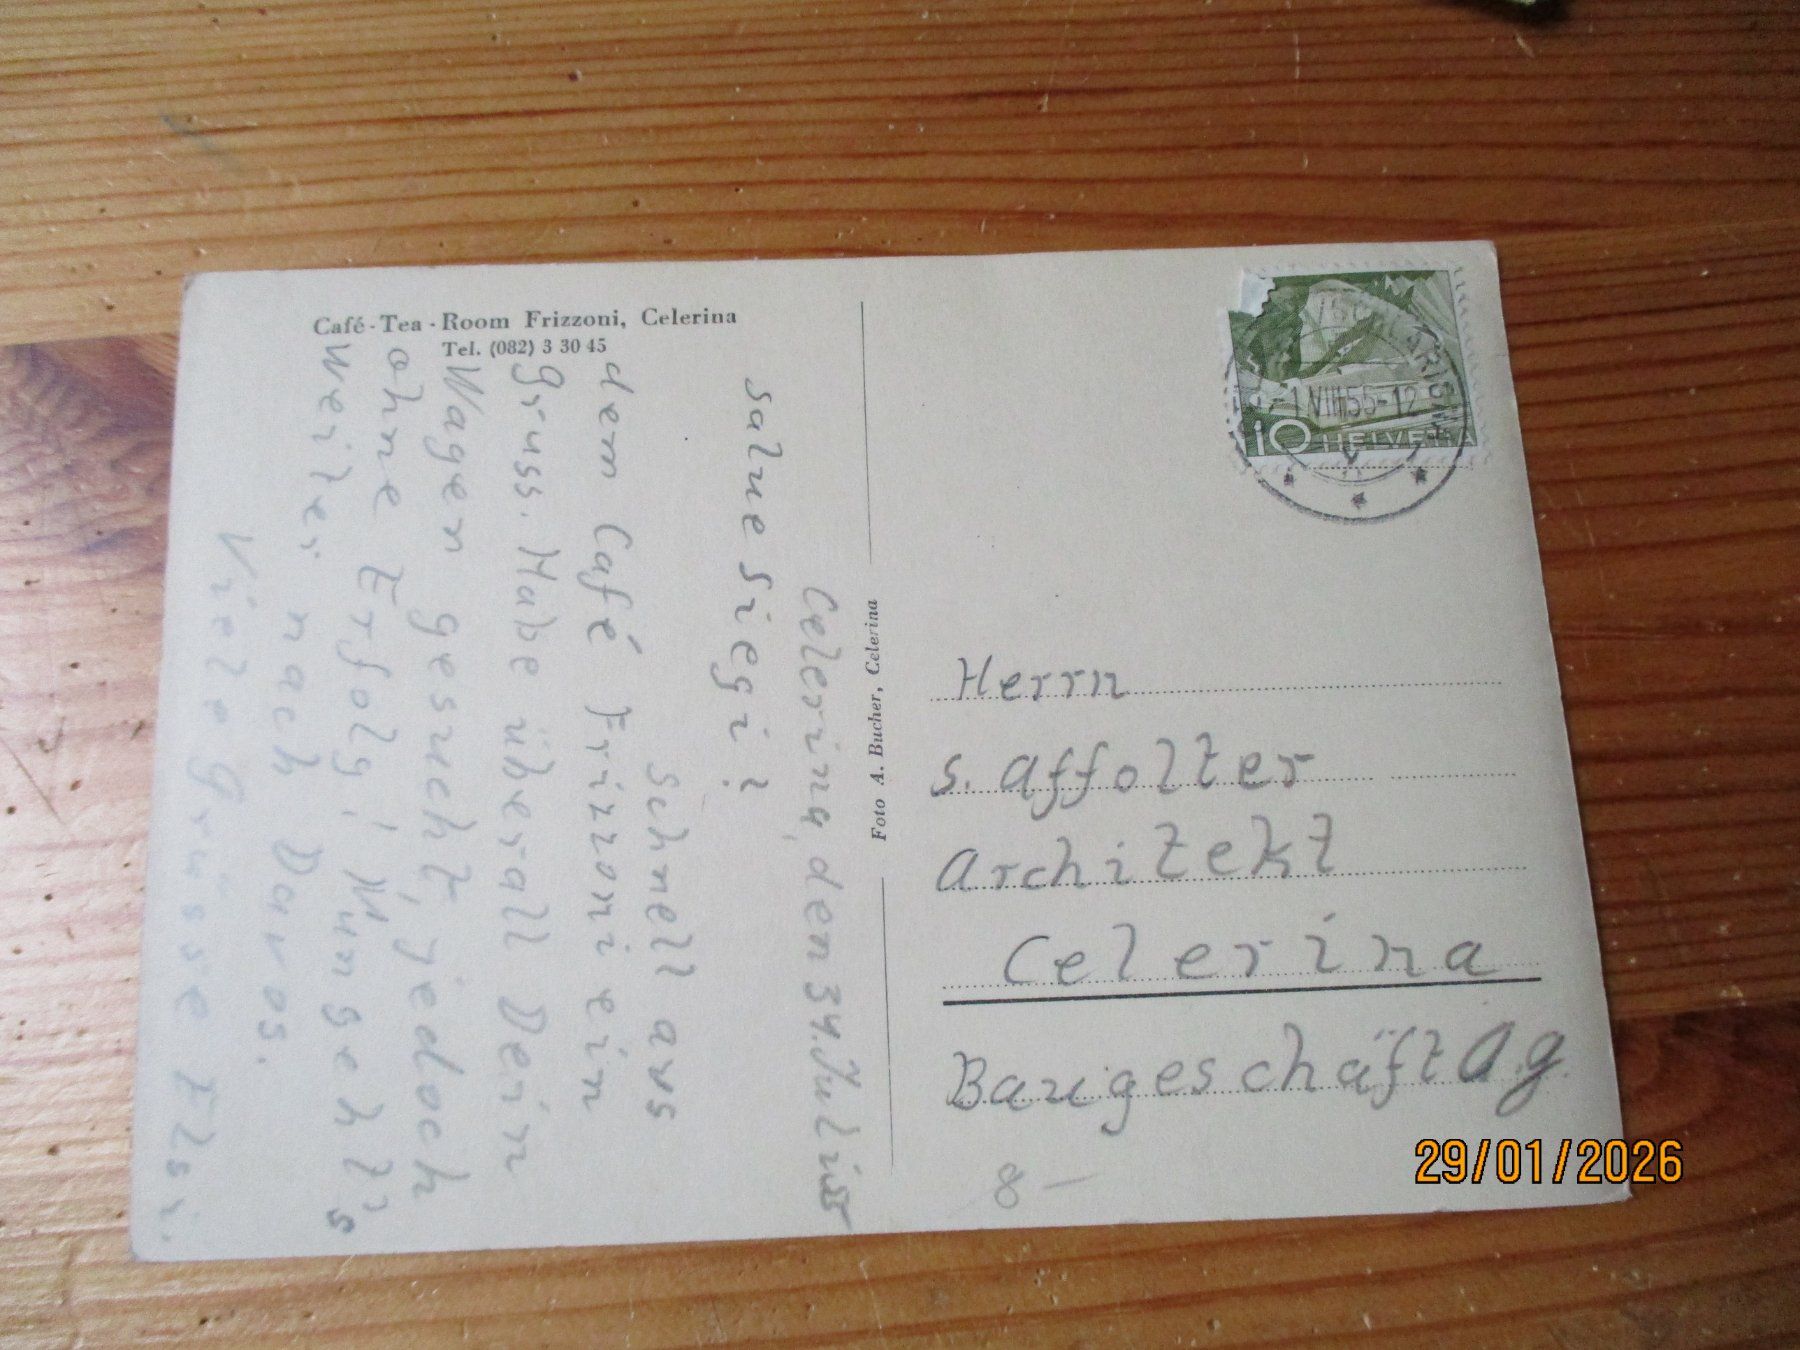 Café-Tea-Room Frizzoni, Celerina
Tel. (082) 3 30 45
Celerina, den 31. Juli 1955
Salue Siegi!
Schnell aus
dem Café Frizzoni ein
Gruss. Habe überall Dein
Wagen gesucht, jedoch
ohne Erfolg! Nun geht's
weiter nach Davos.
Viele Grüsse Elsi.
Foto A. Bucher, Celerina
-1.VIII.55-12
10 HELVETIA
Herrn
S. Affolter
Architekt
Celerina
Baugeschäft A.g.
8 –
29/01/2026